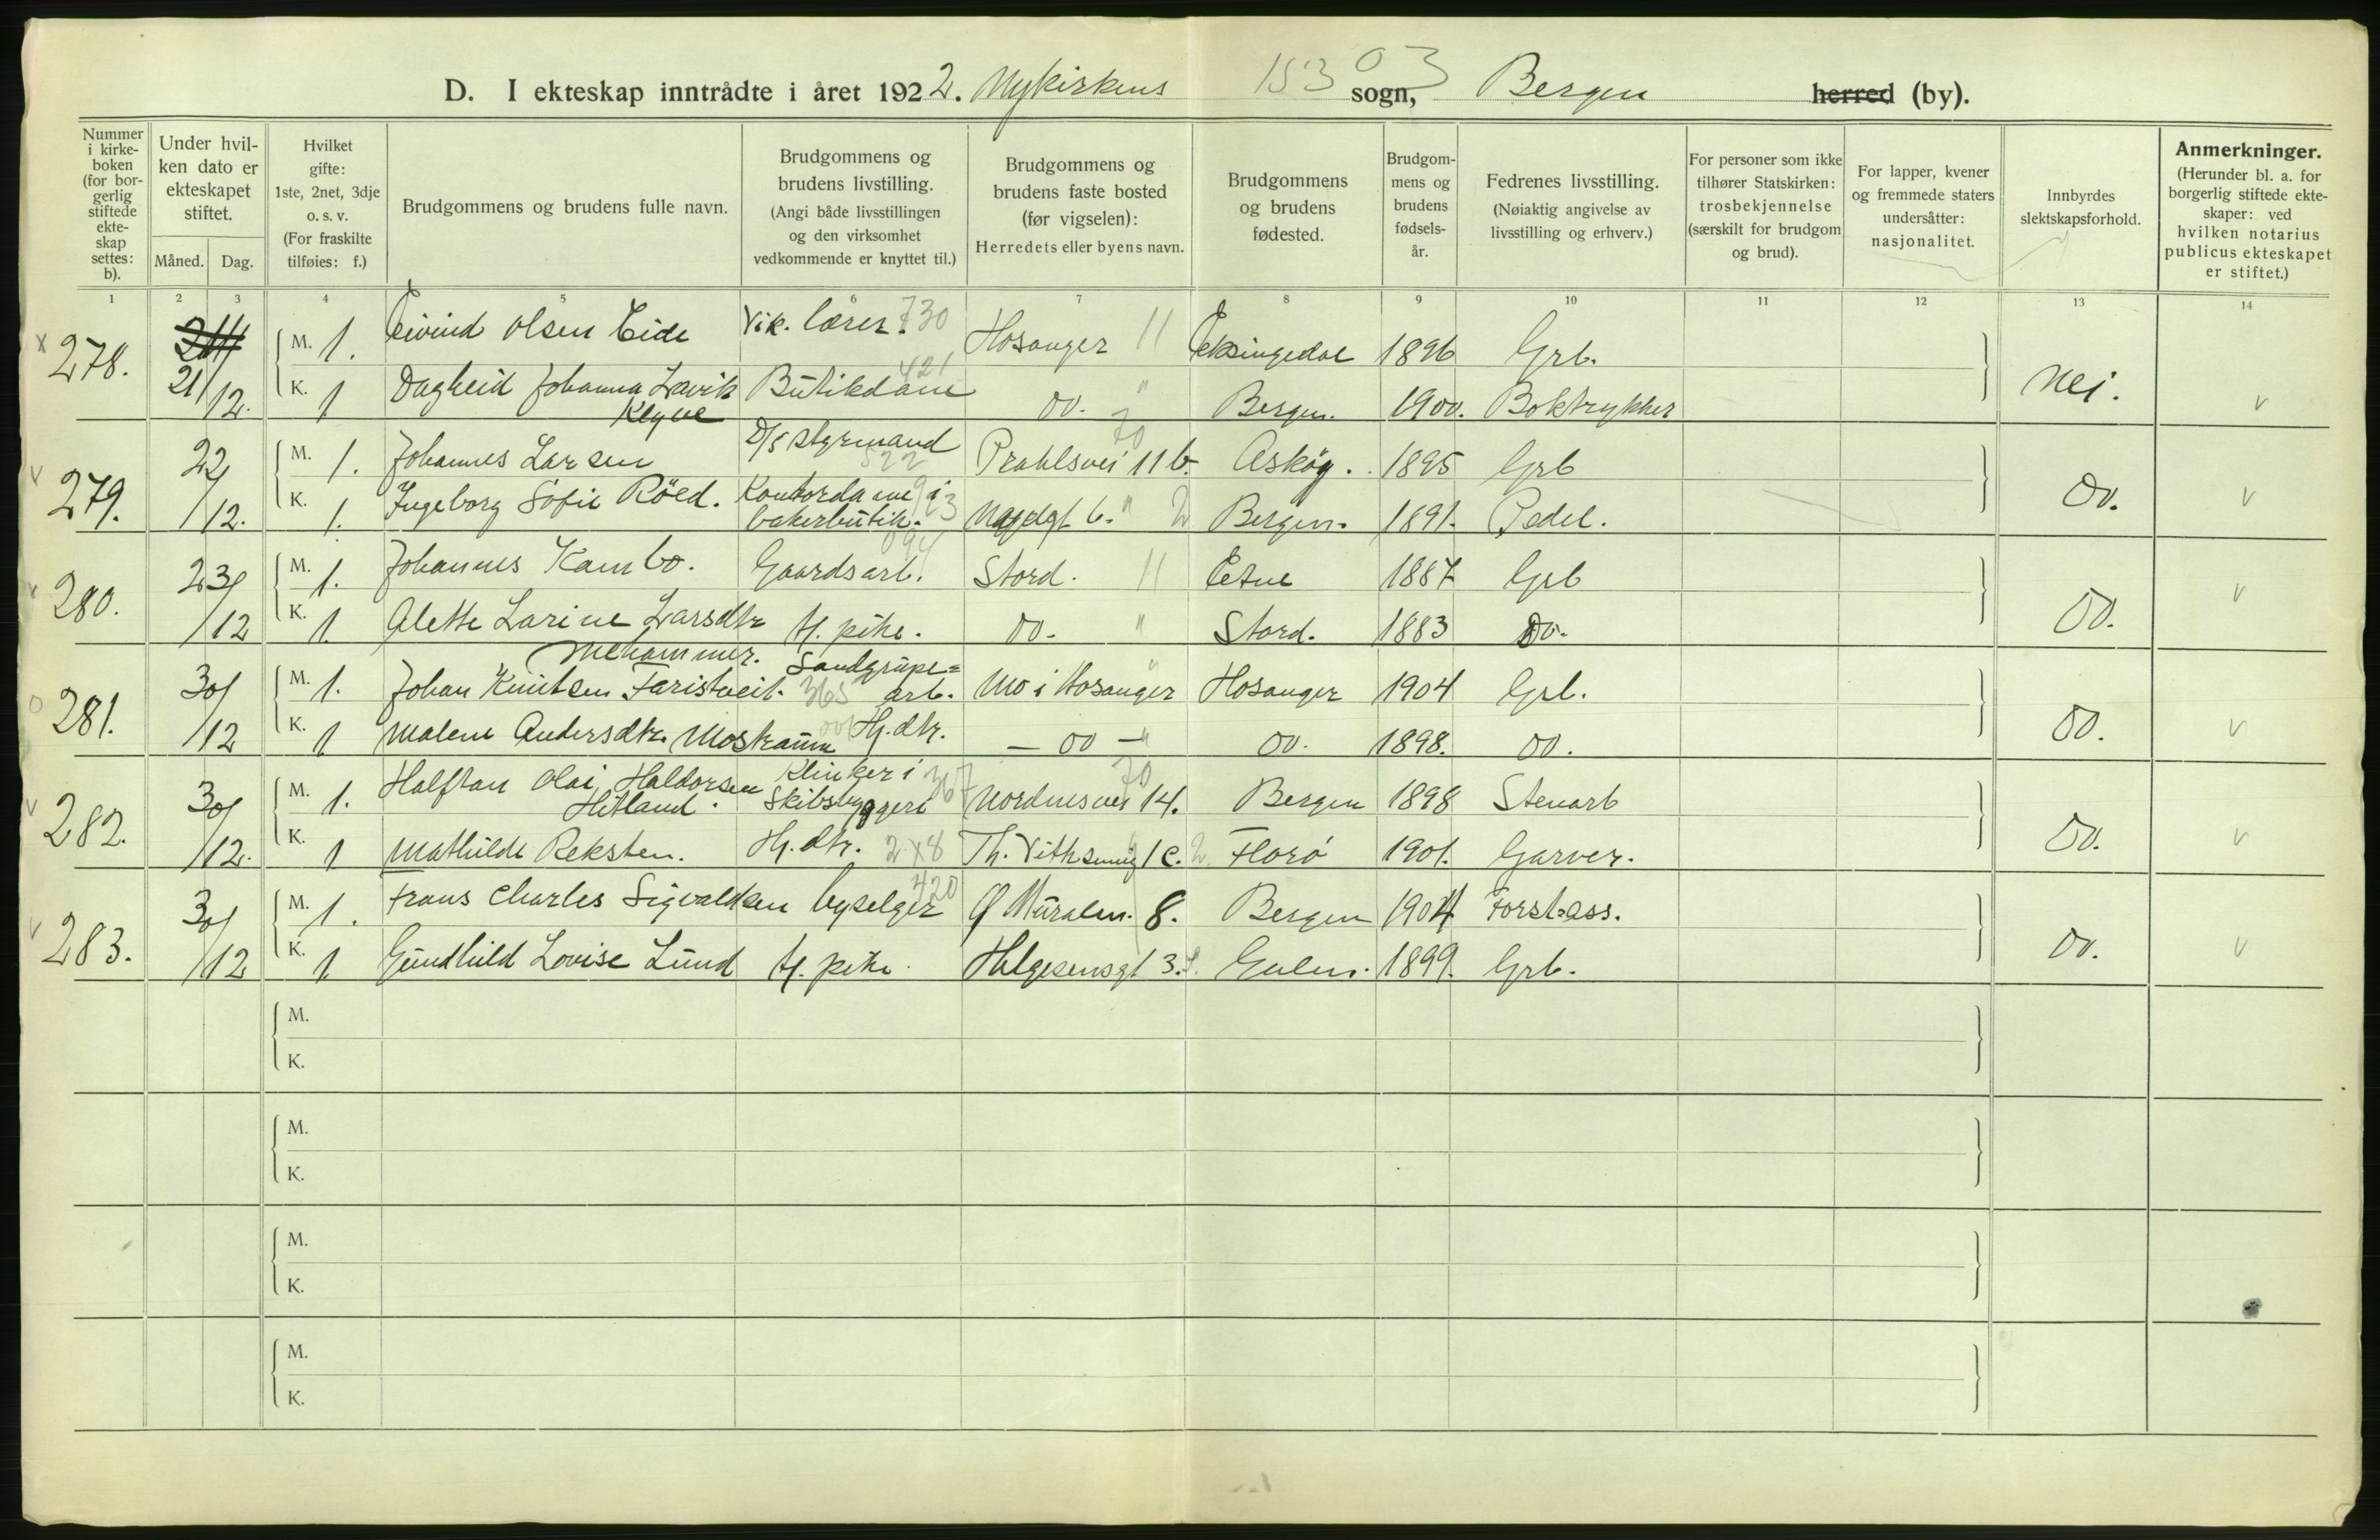 D. I ekteskap inntrådte i året 1922. Nykirkens 15303 sogn, Bergen herred (by).
Nummer i kirkeboken (for borgerlig stiftede ekteskap settes: b).
Under hvilken dato er ekteskapet stiftet.
Måned. Dag.
Hvilket gifte: 1ste, 2net, 3dje o. s. v. (For fraskilte tilføies: f.)
Brudgommens og brudens fulle navn.
Brudgommens og brudens livstilling. (Angi både livsstillingen og den virksomhet vedkommende er knyttet til.)
Brudgommens og brudens faste bosted (før vigselen): Herredets eller byens navn.
Brudgommens og brudens fødested.
Brudgommens og brudens fødselsår.
Fedrenes livsstilling. (Nøiaktig angivelse av livsstilling og erhverv.)
For personer som ikke tilhører Statskirken: trosbekjennelse (særskilt for brudgom og brud).
For lapper, kvener og fremmede staters undersåtter: nasjonalitet.
Innbyrdes slektskapsforhold.
Anmerkninger. (Herunder bl. a. for borgerlig stiftede ekteskaper: ved hvilken notarius publicus ekteskapet er stiftet.)
1 2 3 4 5 6 7 8 9 10 11 12 13 14
x 278. 21/12. M. 1. Eivind Olsen Eide Vik. lærer. 730 Hosanger 11 Eksingedal 1896 Grb. Nei. v
K. 1 Dagheid Johanna Lavik Kleyve Butikdame 421 Do. " Bergen. 1900. Boktrykker
v 279. 22/12. M. 1. Johannes Larsen D/S styrmand 522 Prahlsvei 11 b. 70 Askøy. 1895 Grb Do. v
K. 1. Ingeborg Sofie Röed. Kontordame i bakerbutik. 913 6. " 2 Bergen. 1891. Pedel.
v 280. 23/12 M. 1. Johannes Kambo. Gaardsarb. 094 Stord. 11 Etne 1887 Grb Do. v
K. 1. Alette Larine Larsdtr Mehammer. Hj. pike. Do. " Stord. 1883 Do.
o 281. 30/12 M. 1. Johan Knutsen Faristveit. Sandgrupe= arb. 365 Mo i Hosanger " Hosanger 1904 Grb. Do. v
K. 1 Malene Andersdtr. Mostraum Hj. dtr. — Do — " Do. 1898. Do.
v 282. 30/12. M. 1. Halftan Olai Haldorsen Hitland. Klinker i Skibsbyggeri 367 Nordnesvei 14. 70 Bergen 1898 Stenarb Do. v
K. 1 Mathilde Reksten. Hj. dtr. 2x8 1 c. 2 Florö 1901. Garver.
v 283. 30/12 M. 1. Frans Charles Sigvaldsen byselger 420 Ø Muralm. 8. Bergen 1904 Forst=ass. Do. v
K. 1 Gundhild Lovise Lund Hj. pike. Helgesensgt 3. Gulen. 1899. Grb.
M.
K.
M.
K.
M.
K.
M.
K.